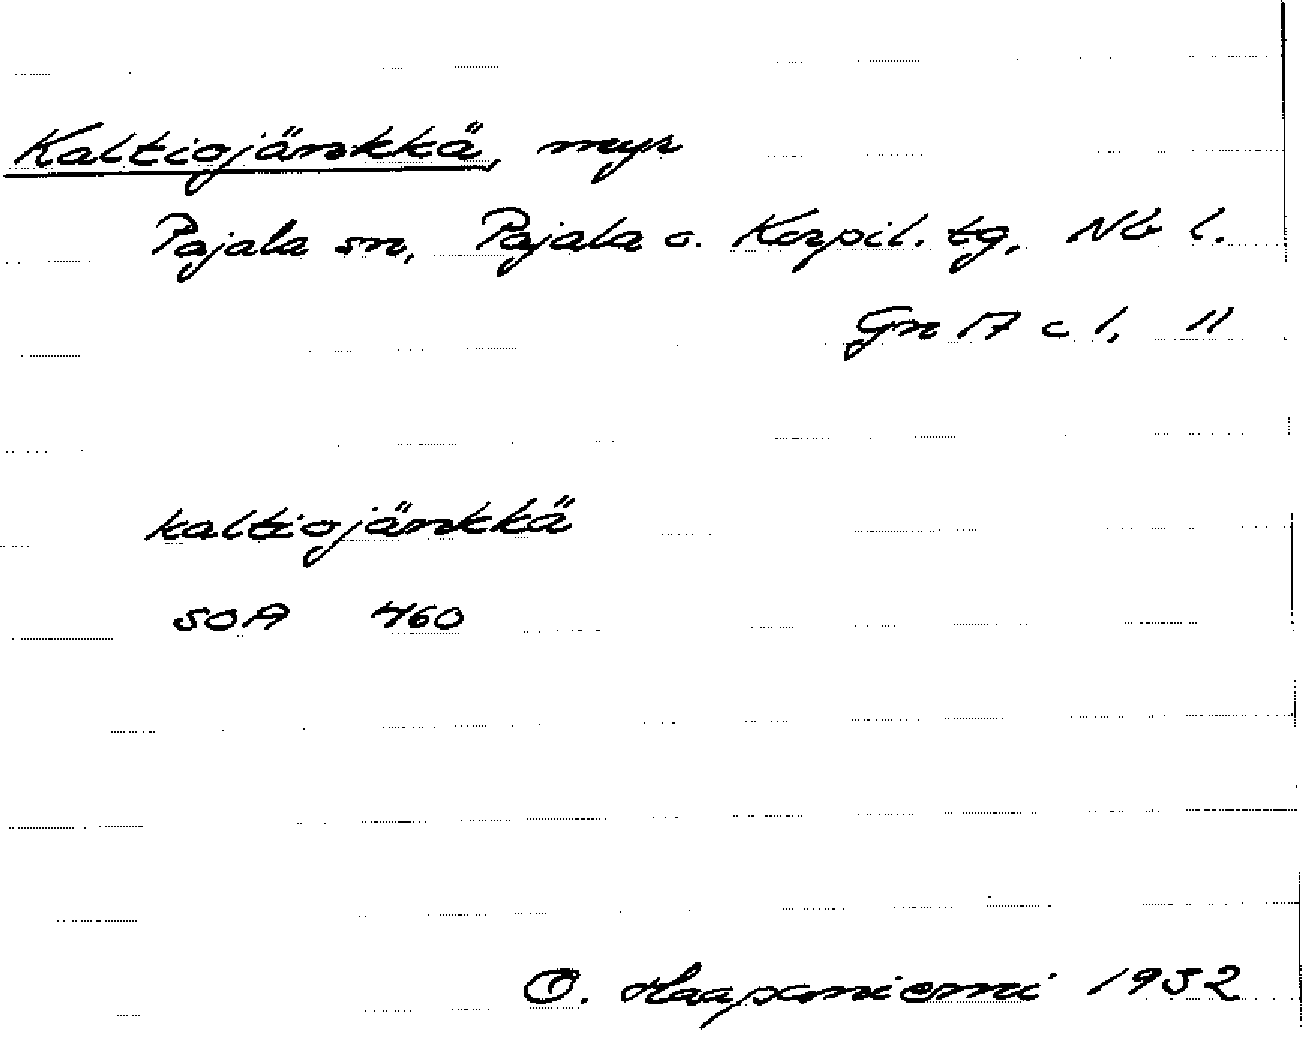 Kaltiojänkkä, myr
Pajala sn, Pajala o. Korpil. tg, Nb l.
Gn 17 c 1, 11
kaltiojänkkä
SOA 460
O. Haapaniemi 1932